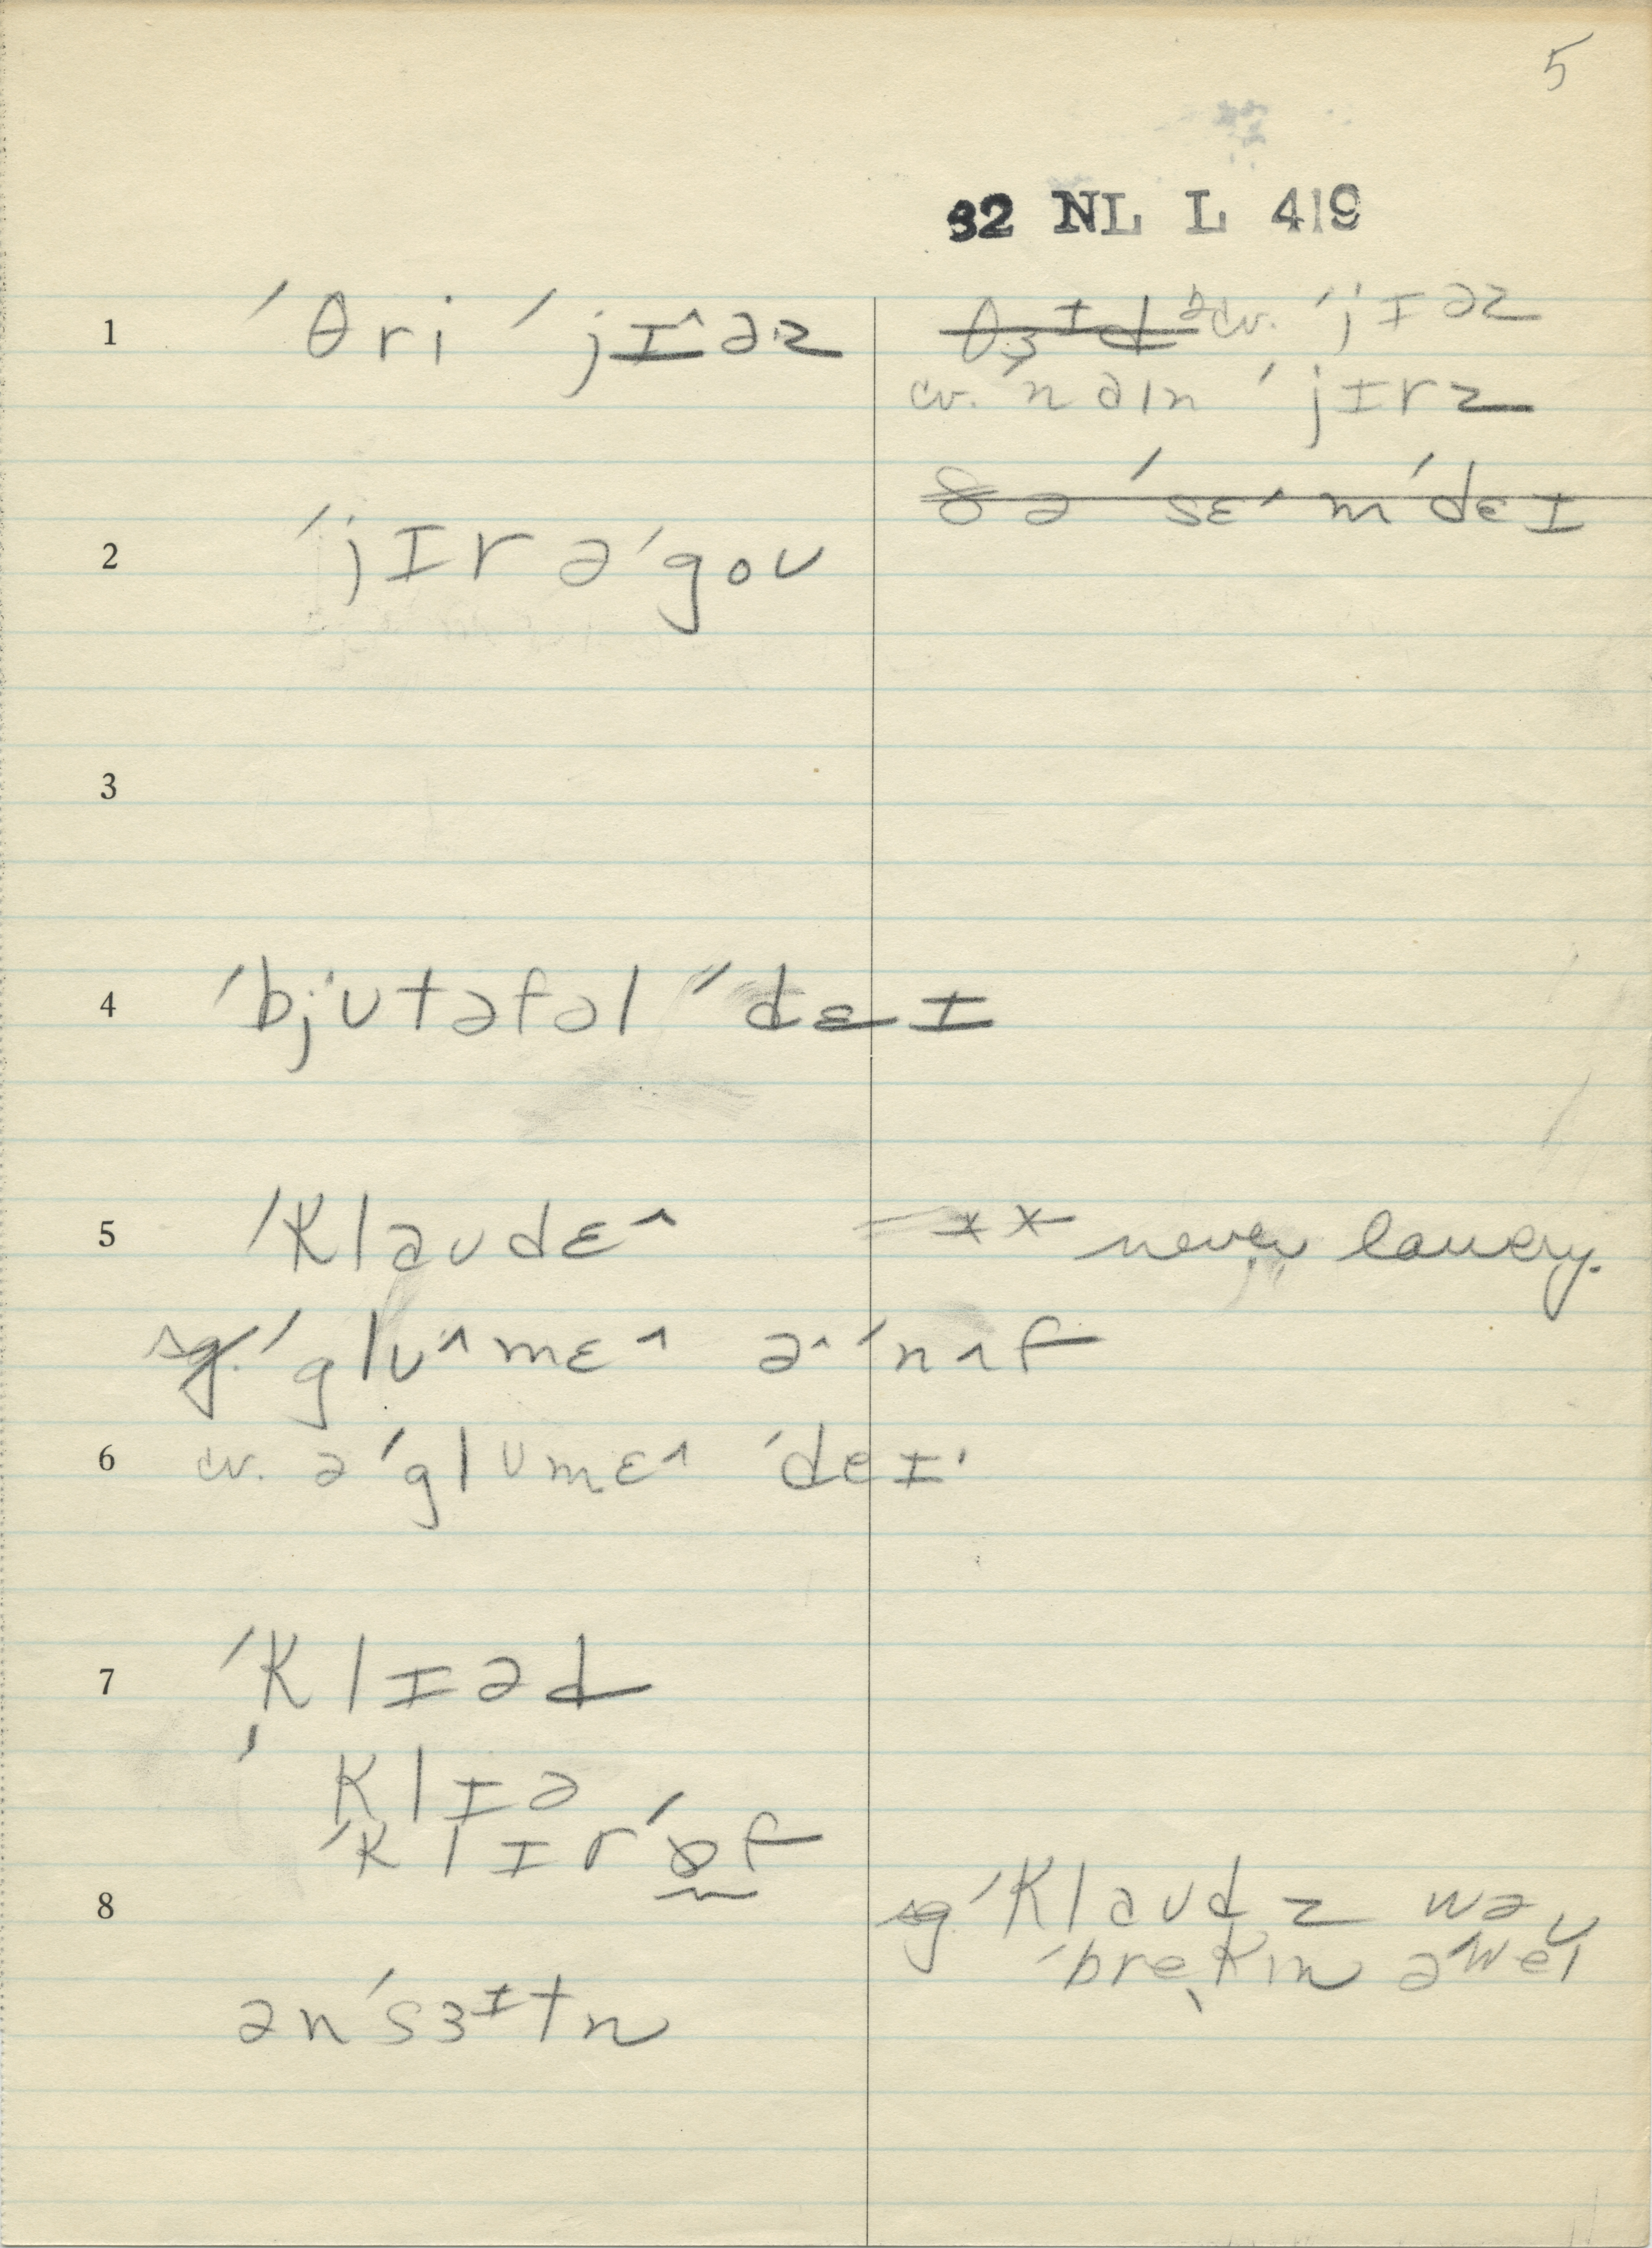 5
32 NL L 419
1 ˈθri ˈjɪ^əz
θɜɪd 2cv. ˈjɪəz
cv. ˈnaɪn ˈjɪrz
2 ˈjɪr əˈgoʊ
ðə ˈsɛ^m ˈdɛɪ
3
4 ˈbjutəfəl ˈˈdɛɪ
5 ˈklaʊdɛ^
** never lowery.
sg. ˈglu^mɛ^ ə^ˈnʌf
6 cv. əˈglumɛ^ ˈdeɪ·
7 ˈklɪəd
ˈklɪə
ˈklɪrˈɒf
8
sg. ˈklaʊdz wəʊ
ˈbrekɪn əˈweɪ
ənˈsɜɪtn